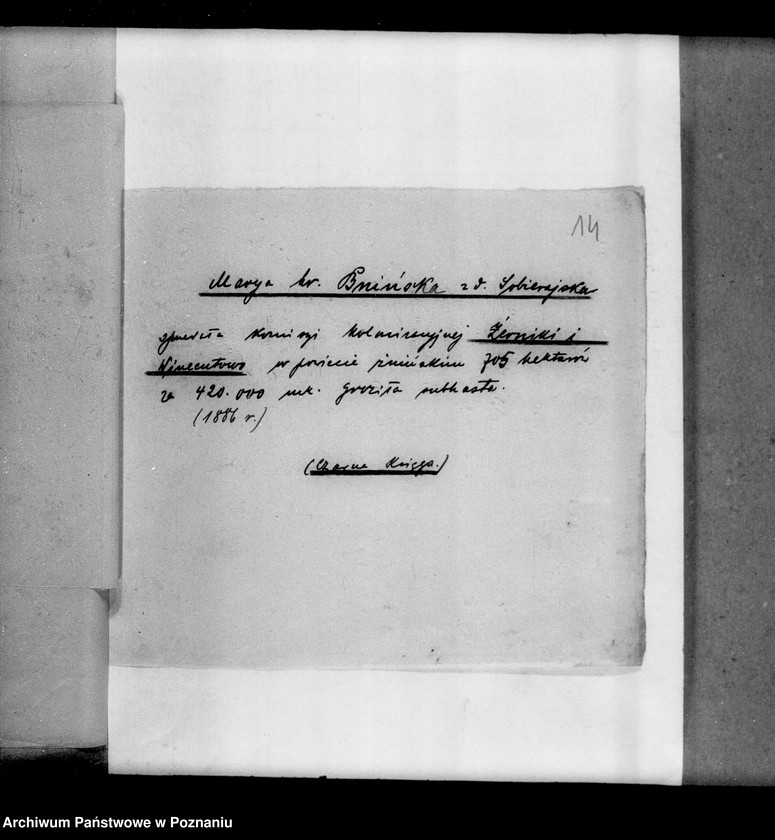 14
Marya hr. Bnińska z d. Sobierajska
sprzedała Komisyi Kolonizacyjnej Żerniki i
Wincentowo w powiecie żnińskim 705 hektarów
za 420.000 mk. Groziła subhasta.
(1886 r.)
(Czarna Księga.)
Archiwum Państwowe w Poznaniu